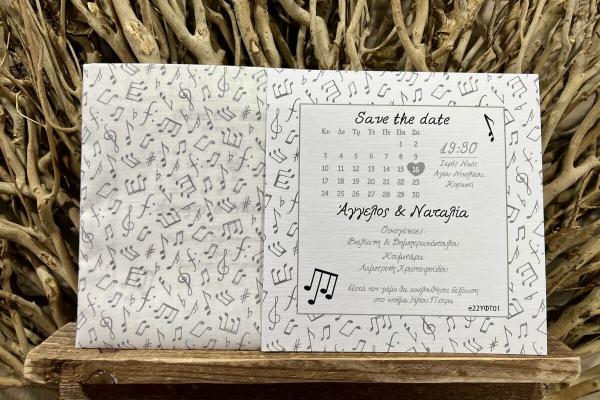 Save the date
Κυ Δε Τρ Τε Πε Πα Σα
1 2
3 4 5 6 7 8 9
10 11 12 13 14 15 16
17 18 19 20 21 22 23
24 25 26 27 28 29 30
19:30
Ιερός Ναός
Αγίου Νικολάου,
Άγγελος & Ναταλία
Οικογένειες:
Κουμπάρα
Λαμπρινή Χριστοφορίδου
Μετά τον γάμο θα ακολουθήσει δεξίωση
στο κτήμα
e22ΥΦΤ01